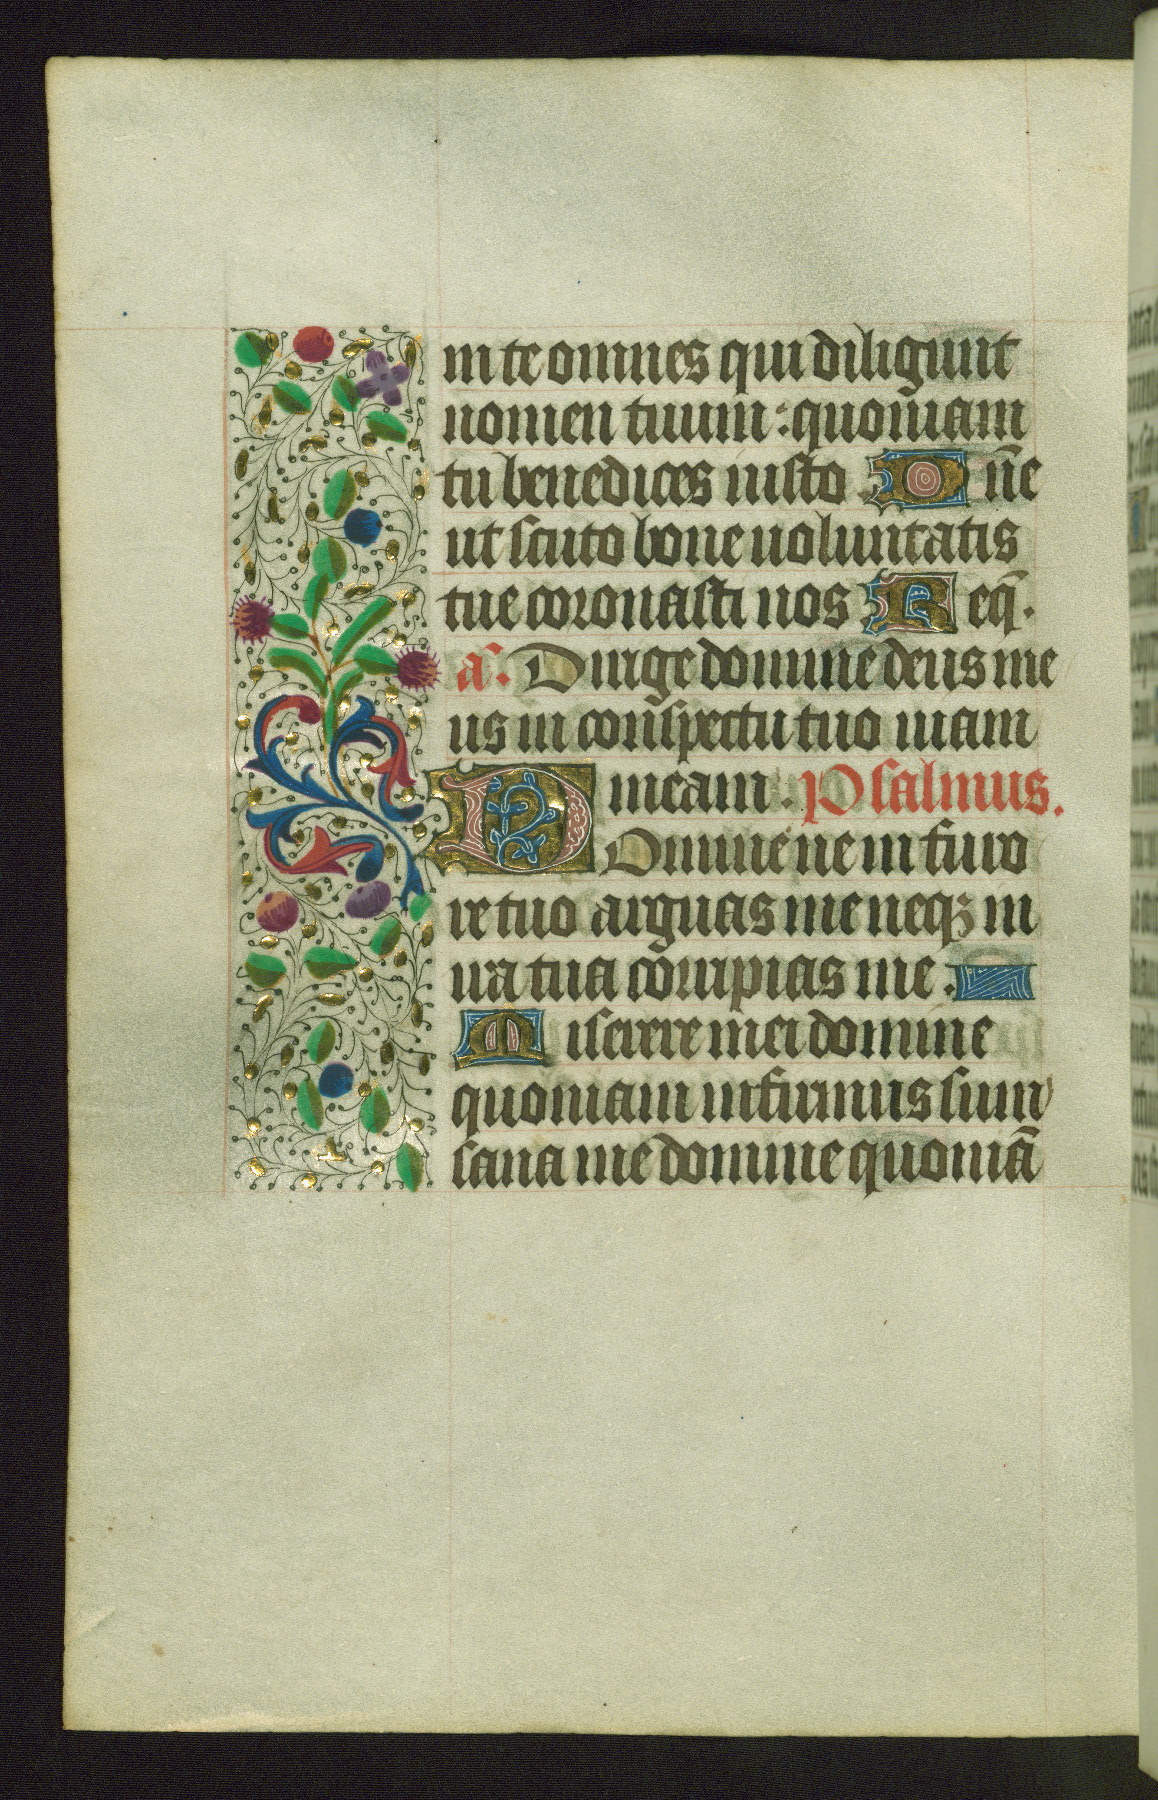 in te omnes qui diligunt
nomen tuum : quoniam
tu benedices iusto Dn̄e
ut scuto bone uoluntatis
tue coronasti nos Req̄.
a͞. Dirige domine deus me
us in conspectu tuo uiam
meam. Psalmus.
Domine ne in furo
re tuo arguas me neqꝫ in
ira tua corripias me.
Miserere mei domine
quoniam infirmus sum
sana me domine quoniā